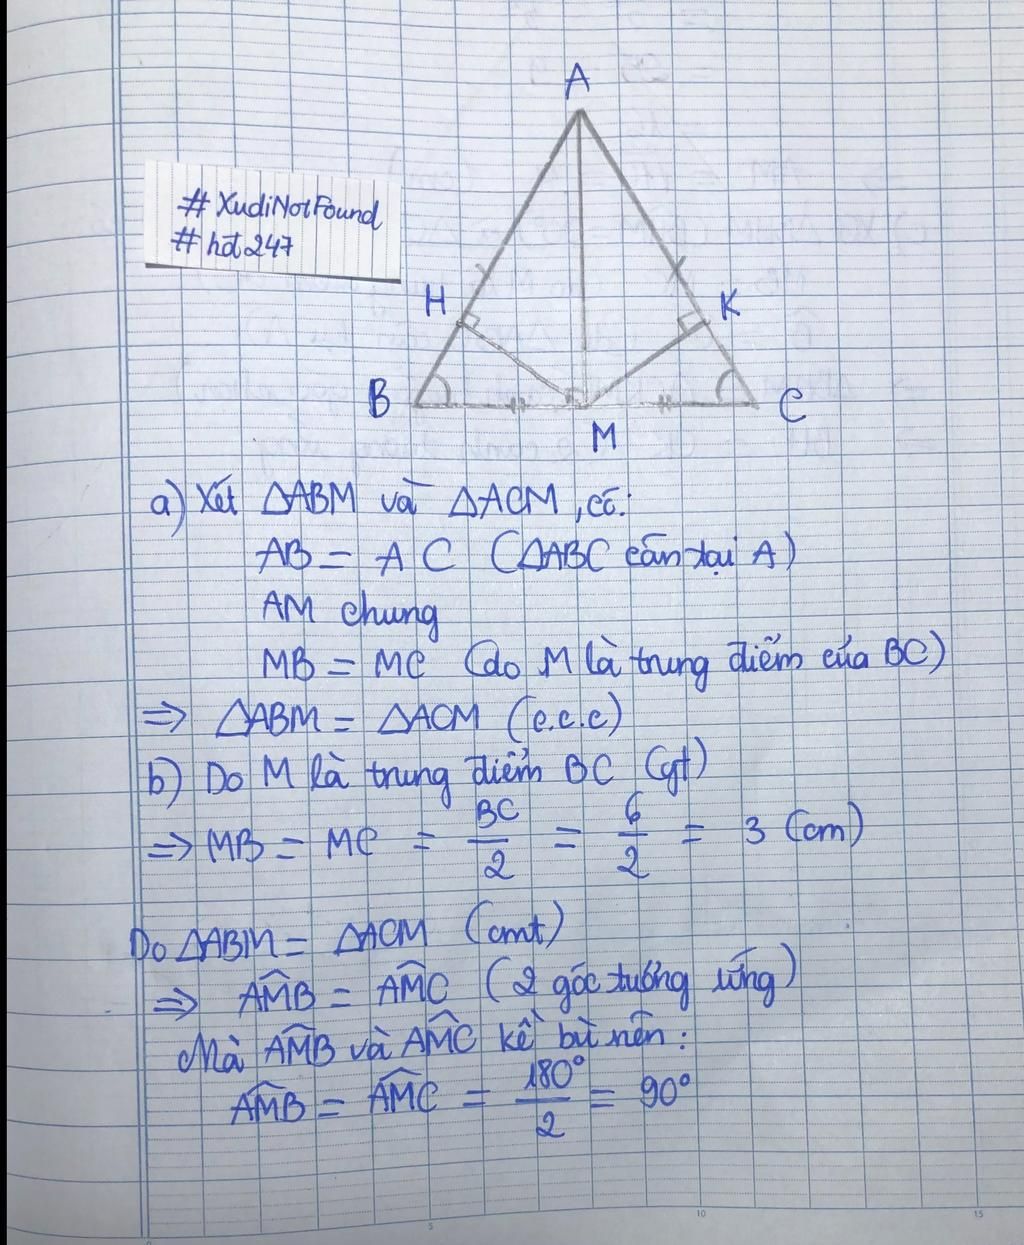 A
# XudiNotFound
# hđ247
H
K
B
M
C
a) Xét ΔABM và ΔACM, có:
AB = AC (ΔABC cân tại A)
AM chung
MB = MC (do M là trung điểm của BC)
=> ΔABM = ΔACM (c.c.c)
b) Do M là trung điểm BC (gt)
=> MB = MC = BC/2 = 6/2 = 3 (cm)
Do ΔABM = ΔACM (cmt)
=> \widehat{AMB} = \widehat{AMC} (2 góc tương ứng)
Mà \widehat{AMB} và \widehat{AMC} kề bù nên:
\widehat{AMB} = \widehat{AMC} = 180°/2 = 90°
5
10
15